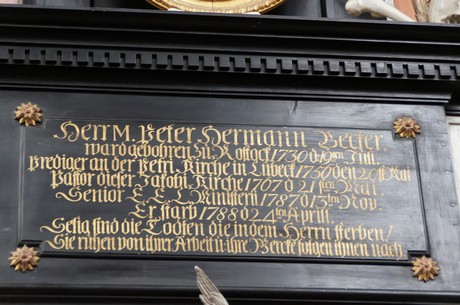 Herr M. Peter Hermann Becker
ward gebohren zu Rostock 1730 d 19ten Jul.
Prediger an der Petri Kirche in Lübeck 1750 den 20st Mai
Pastor dieser Jakobi Kirche 1767 d 21sten Mai
Senior E. E. Ministerii 1787 d 13ten Nov.
Er starb 1788 d 24ten April.
Selig sind die Todten die in dem Herrn sterben!
Sie ruhen von ihrer Arbeit u ihre Wercke folgen ihnen nach